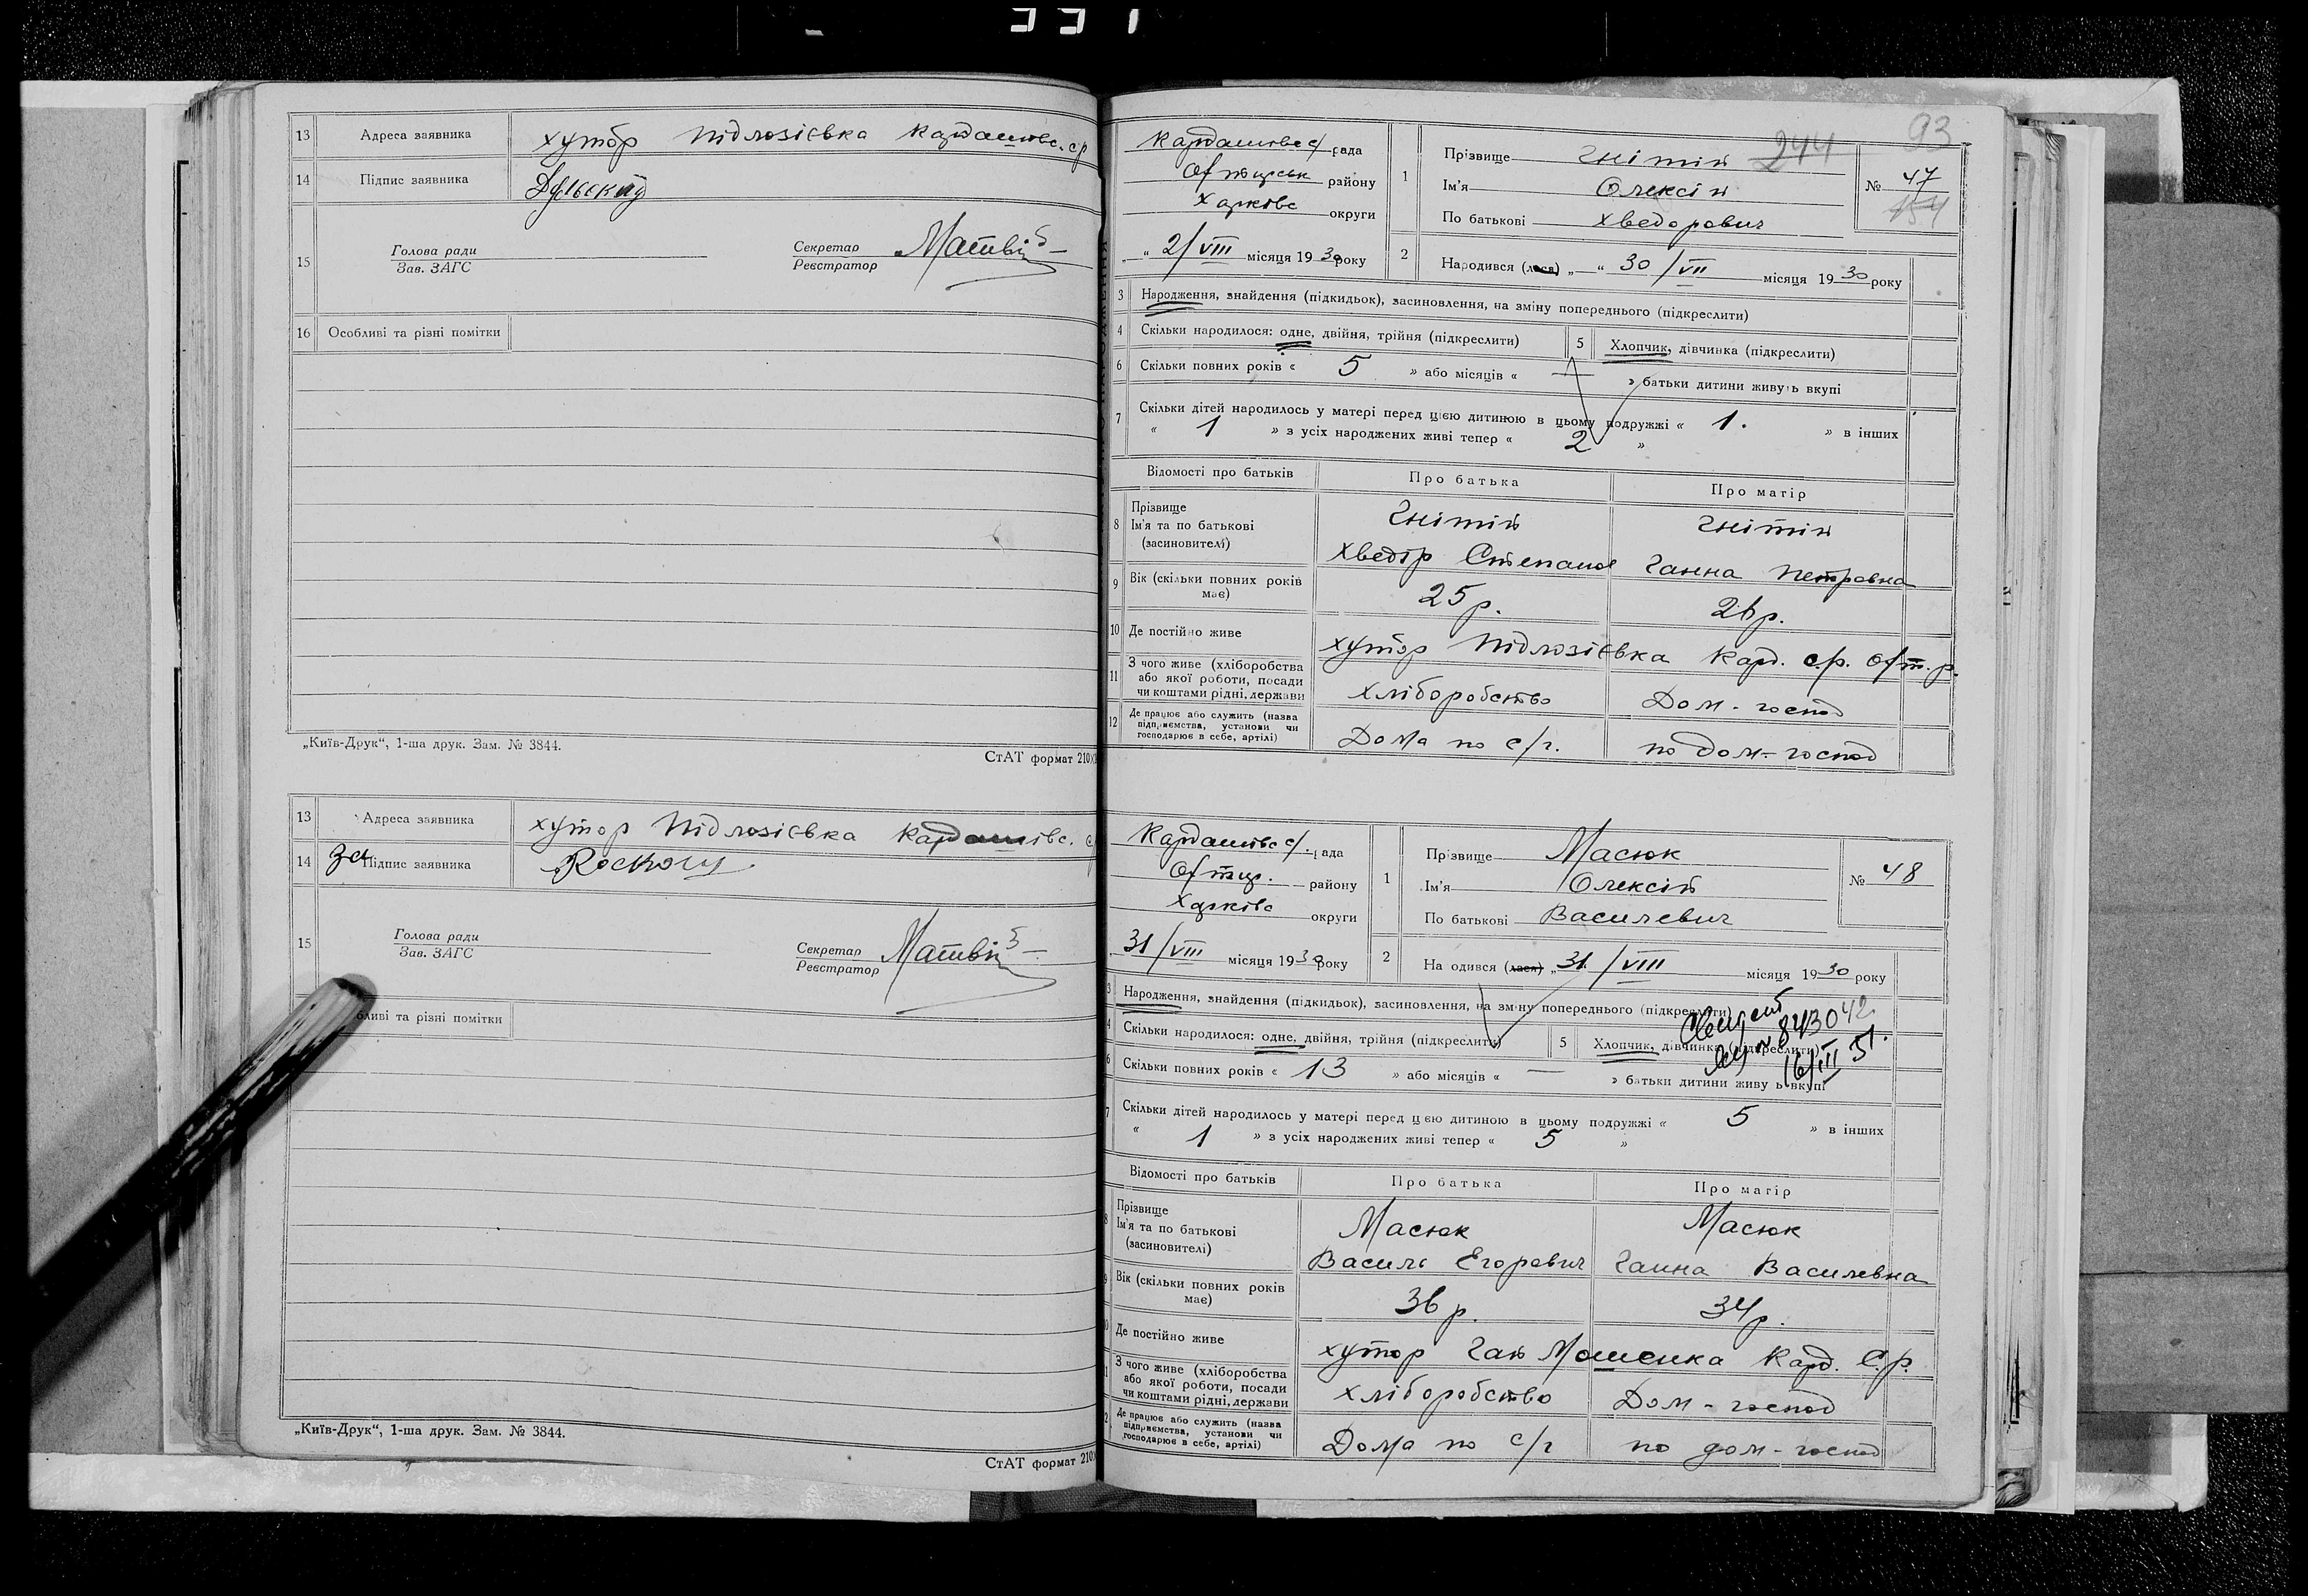 13 Адреса заявника хутор Підлозієвка Кардашовс. ср
14 Підпис заявника
15 Голова ради
Зав. ЗАГС
Секретар
Реєстратор
16 Особливі та різні помітки
„Київ-Друк“, 1-ша друк. Зам. № 3844.
СтАТ формат 210Х
13 Адреса заявника хутор Підлозієвка Кардашівс. с
14 за Підпис заявника
15 Голова ради
Зав. ЗАГС
Секретар
Реєстратор
бливі та різні помітки
„Київ-Друк“, 1-ша друк. Зам. № 3844.
СтАТ формат 210
93
244
Кардашовс с/ рада
Охтирськ району
Харківс округи
„ “ 2/VIII місяця 1930 року
1 Прізвище Гнітій
Ім'я Олексій
По батькові Хведорович
№ 47
154
2 Народився (лася) „ “ 30/VII місяця 1930 року
3 Народження, знайдення (підкидьок), засиновлення, на зміну попереднього (підкреслити)
4 Скільки народилося: одне, двійня, трійня (підкреслити)
5 Хлопчик, дівчинка (підкреслити)
6 Скільки повних років « 5 » або місяців « — » батьки дитини живуть вкупі
7 Скільки дітей народилось у матері перед цією дитиною в цьому подружжі « 1. » в інших
« 1 » з усіх народжених живі тепер « 2 »
Відомості про батьків Про батька Про матір
8 Прізвище Гнітій Гнітій
Ім'я та по батькові
(засиновителі) Хведір Степанов Ганна Петровна
9 Вік (скільки повних років
має) 25 р. 26 р.
10 Де постійно живе хутор Підлозієвка Кард. с.р. Охт. р.
11 З чого живе (хліборобства
або якої роботи, посади
чи коштами рідні, держави Хліборобство Дом-господ
12 Де працює або служить (назва
підприємства, установи чи
господарює в себе, артілі) Дома по с/г. по дом-господ
Кардашовс с/. рада
Охтир. району
Харківс округи
31/VIII місяця 1930 року
1 Прізвище Масюк
Ім'я Олексій
По батькові Василевич
№ 48
2 На одився (лася) „ 31/VIII місяця 1930 року
3 Народження, знайдення (підкидьок), засиновлення, на зміну попереднього (підкреслити)
843042
16/III 31.
4 Скільки народилося: одне, двійня, трійня (підкреслити)
5 Хлопчик, дівчинка (підкреслити)
6 Скільки повних років « 13 » або місяців « — » батьки дитини живу ь вкупі
7 Скільки дітей народилось у матері перед цією дитиною в цьому подружжі « 5 » в інших
« 1 » з усіх народжених живі тепер « 5 »
Відомості про батьків Про батька Про матір
8 Прізвище Масюк Масюк
Ім'я та по батькові
(засиновителі) Василь Егорович Ганна Василевна
9 Вік (скільки повних років
має) 36 р. 34 р.
Де постійно живе хутор Гай Мошенка Кард. С.р.
З чого живе (хліборобства
або якої роботи, посади
чи коштами рідні, держави Хліборобство Дом-господ
Де працює або служить (назва
підприємства, установи чи
господарює в себе, артілі) Дома по с/г по дом-господ